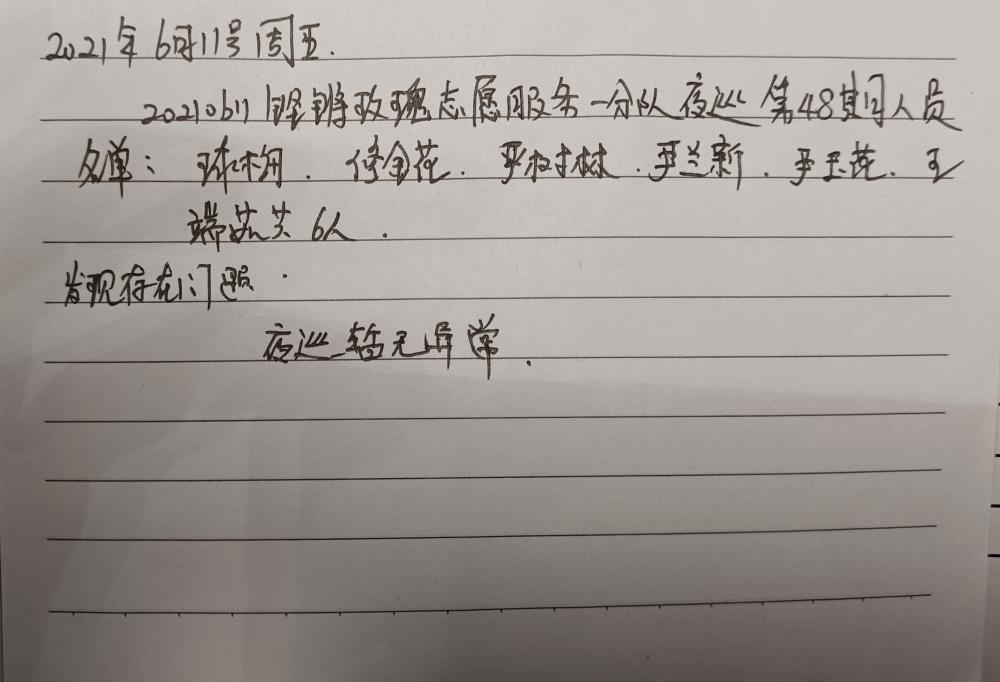 2021年6月11号周五.
20210611铿锵玫瑰志愿服务一分队夜巡第48期间人员
名单：球梅.佟金花.严树林.严兰新.严玉花.王
端英共6人.
发现存在问题.
夜巡暂无异常.